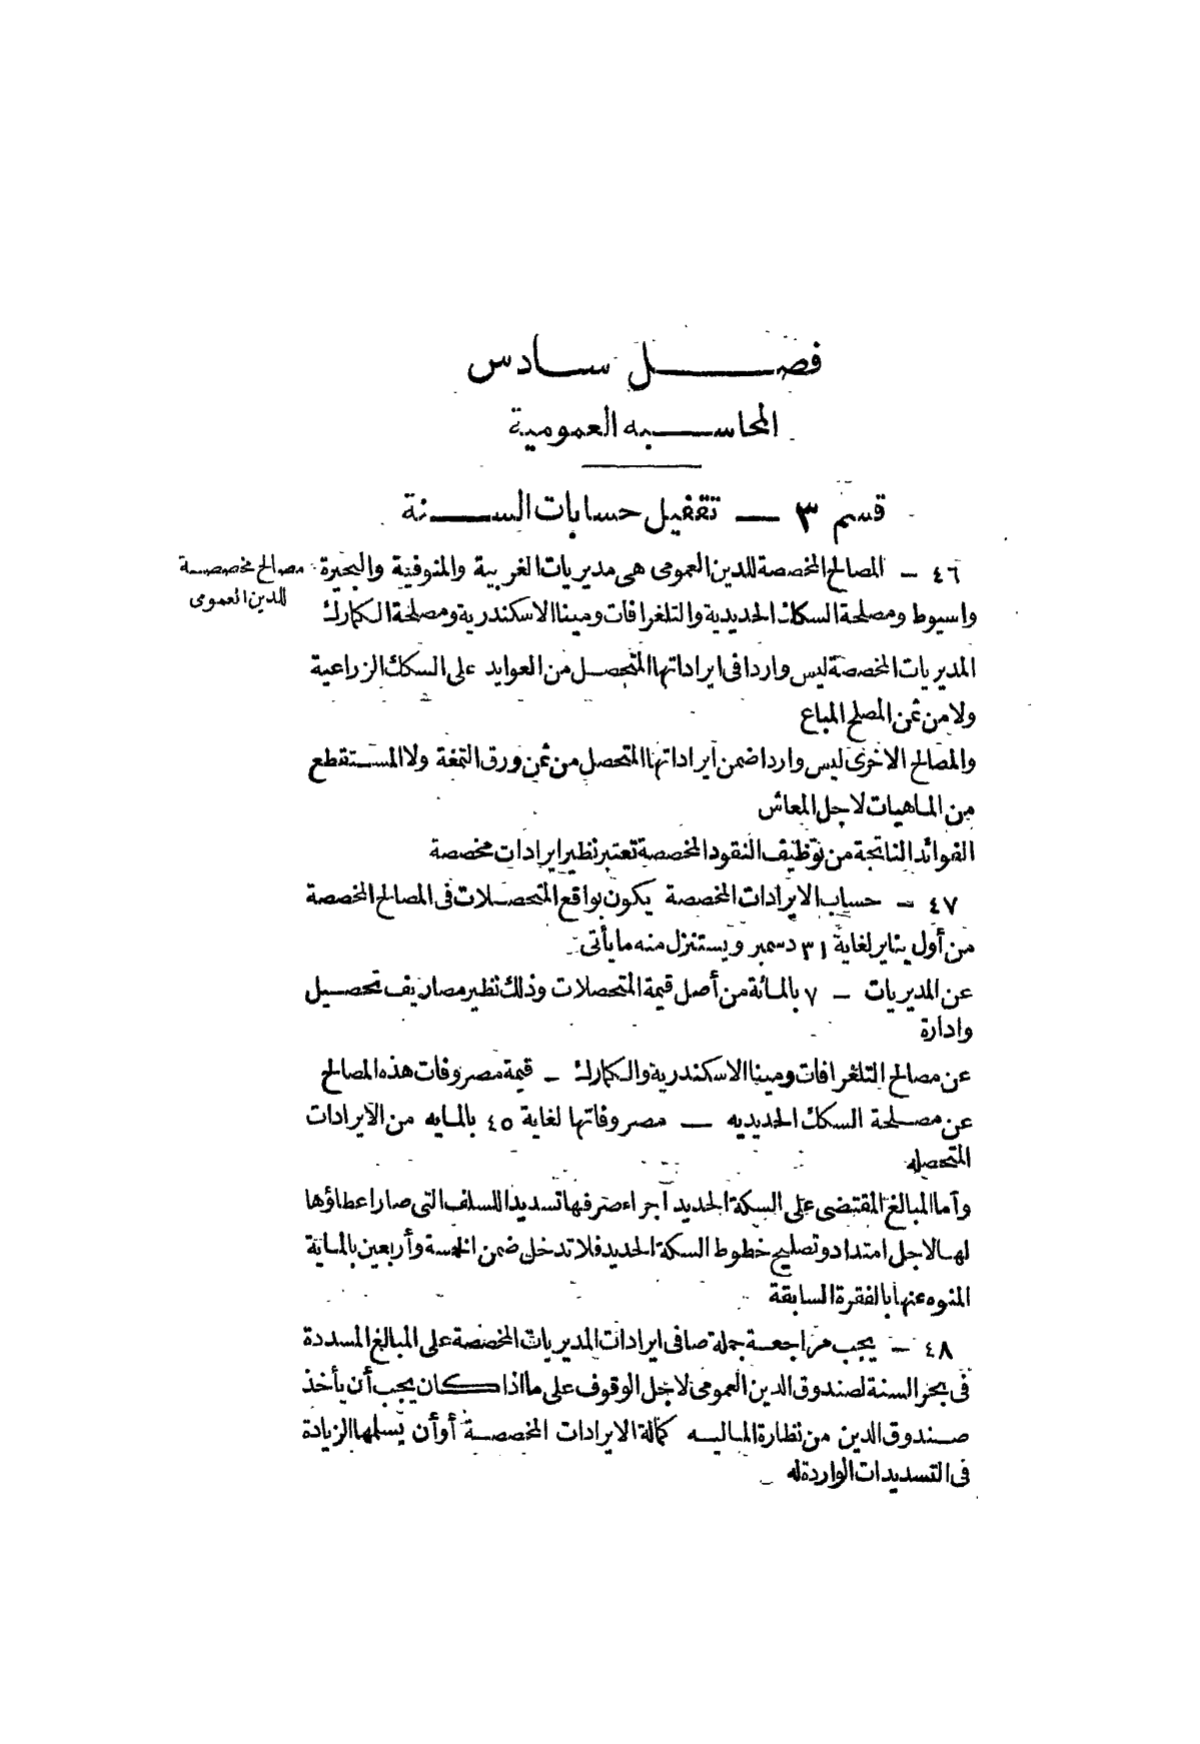 فصل سادس
المحاسبه العمومية
قسم ٣ — تقفيل حسابات السنة
٤٦ – المصالح المخصصة للدين العمومى هى مديريات الغربية والمنوفية والبحيرة
مصالح مخصصة
للدين العمومى
واسيوط ومصلحة السكك الحديدية والتلغرافات ومينا الاسكندرية ومصلحة الكمارك
المديريات المخصصة ليس واردا فى ايراداتها المتحصل من العوايد على السكك الزراعية
ولا من ثمن الملح المباع
والمصالح الاخرى ليس واردا ضمن ايراداتها المتحصل من ثمن ورق التمغة ولا المستقطع
من الماهيات لاجل المعاش
الفوائد الناتجة من توظيف النقود المخصصة تعتبر نظير ايرادات مخصصة
٤٧ – حساب الايرادات المخصصة يكون بواقع المتحصلات فى المصالح المخصصة
من أول يناير لغاية ٣١ دسمبر ويستنزل منه ما يأتى
عن المديريات – ٧ بالمائة من أصل قيمة المتحصلات وذلك نظير مصاريف تحصيل
وادارة
عن مصالح التلغرافات ومينا الاسكندرية والكمارك – قيمة مصروفات هذه المصالح
عن مصلحة السكك الحديديه — مصروفاتها لغاية ٤٥ بالمايه من الايرادات
المتحصله
وأما المبالغ المقتضى على السكة الحديد اجراء صرفها تسديدا للسلف التى صار اعطاؤها
لها لاجل امتداد وتصليح خطوط السكة الحديد فلا تدخل ضمن الخمسة وأربعين بالماية
المنوه عنها بالفقرة السابقة
٤٨ – يجب مراجعة جملة صافى ايرادات المديريات المخصصة على المبالغ المسددة
فى بحر السنة لصندوق الدين العمومى لاجل الوقوف على ما اذا كان يجب أن يأخذ
صندوق الدين من نظارة الماليه كمالة الايرادات المخصصة أو أن يسلمها الزيادة
فى التسديدات الواردة له